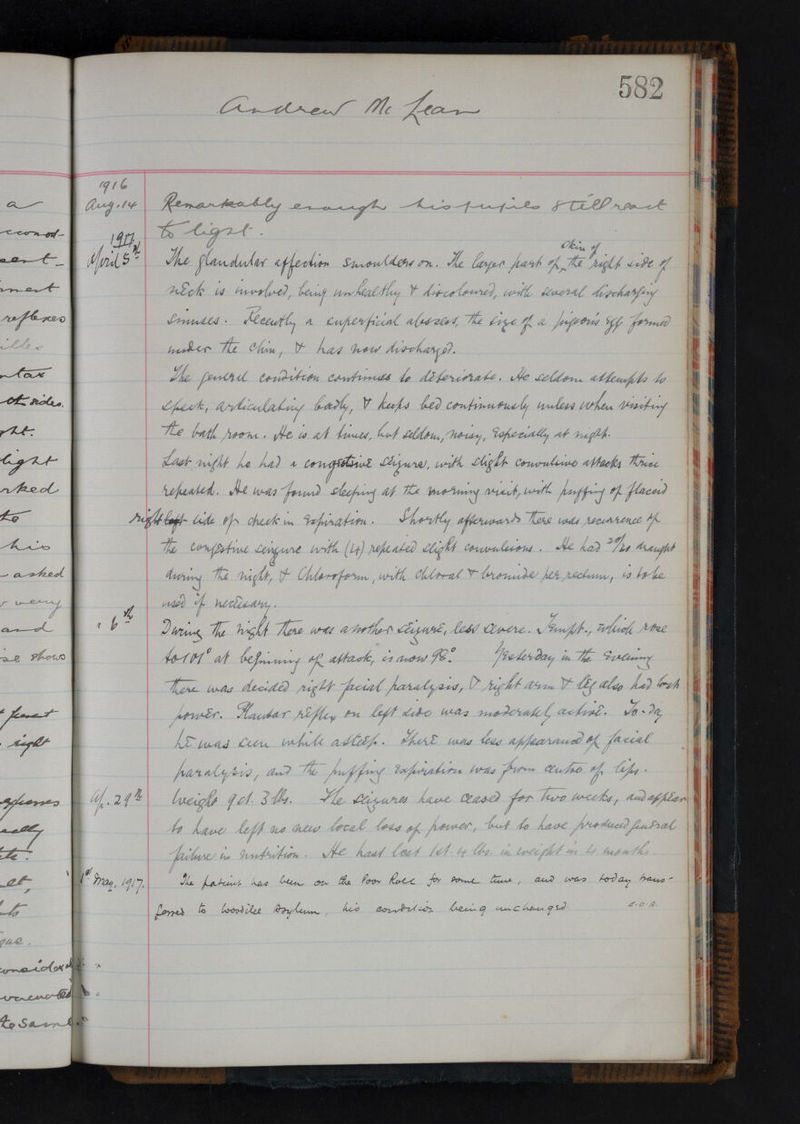 582
Andrew McLean
1916
Aug. 14 Remarkably enough his pupils still react
to light.
1917
April 5th The glandular affection smoulders on. The larger part of skin of the right side of
neck is involved, being unhealthy & discoloured, with several discharging
sinuses. Recently a superficial abscess, the size of a pigeon's egg formed
under the chin, & has now discharged.
The general condition continues to deteriorate. He seldom attempts to
speak, articulating badly, & keeps bed continuously unless when visiting
the bath room. He is at times, but seldom, noisy, especially at night.
Last night he had a congestive seizure, with slight convulsive attacks thrice
repeated. He was found sleeping at the morning visit, with puffing of flaccid
right left side of cheek in expiration. Shortly afterwards there was recurrence of
the congestive seizure with (14) repeated slight convulsions. He had 20/20 draught
during the night, & Chloroform, with chloral & bromide per rectum, is to be
used if necessary.
" 6th During the night there was another seizure, less severe. Tempt., which rose
to 101° at beginning of attack, is now 98°. Yesterday in the evening
there was decided right facial paralysis, & right arm & leg also had lost
power. Plantar reflex on left side was moderately active. To-day
he was seen while asleep. There was less appearance of facial
paralysis, and the puffing expiration was from centre of lips.
Ap. 29th Weight 9 st. 3 lbs. The seizures have ceased for two weeks, and appear
to have left no new local loss of power, but to have produced general
failure in nutrition. He hast lost 1 st. 4 lbs. in weight in 4 months.
1st May. 1917. The patient has been on the Poor Roll for some time, and was today trans-
ferred to Woodilee Asylum, his condition being unchanged.
a
reflexes
ct sides.
light
to
his
asked
very
and
shows
right
to same